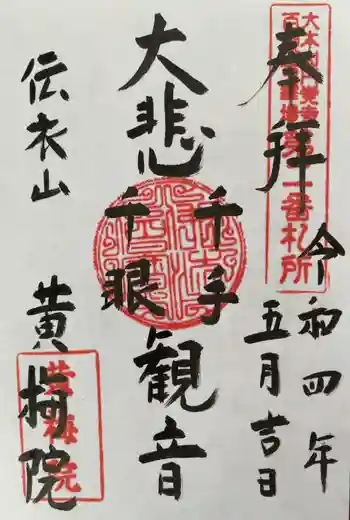 奉拝
令和四年
五月吉日
大悲
千手
千眼
観音
伝衣山
黄梅院
第一番札所
黄梅院